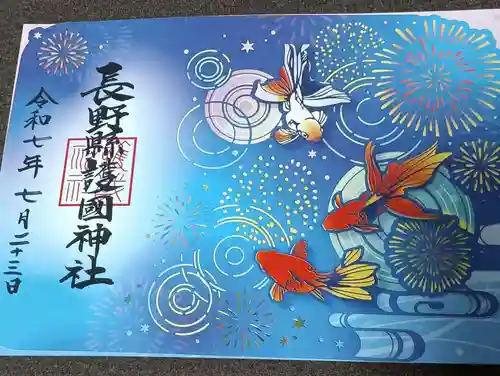 長野縣護國神社
令和七年七月二十三日